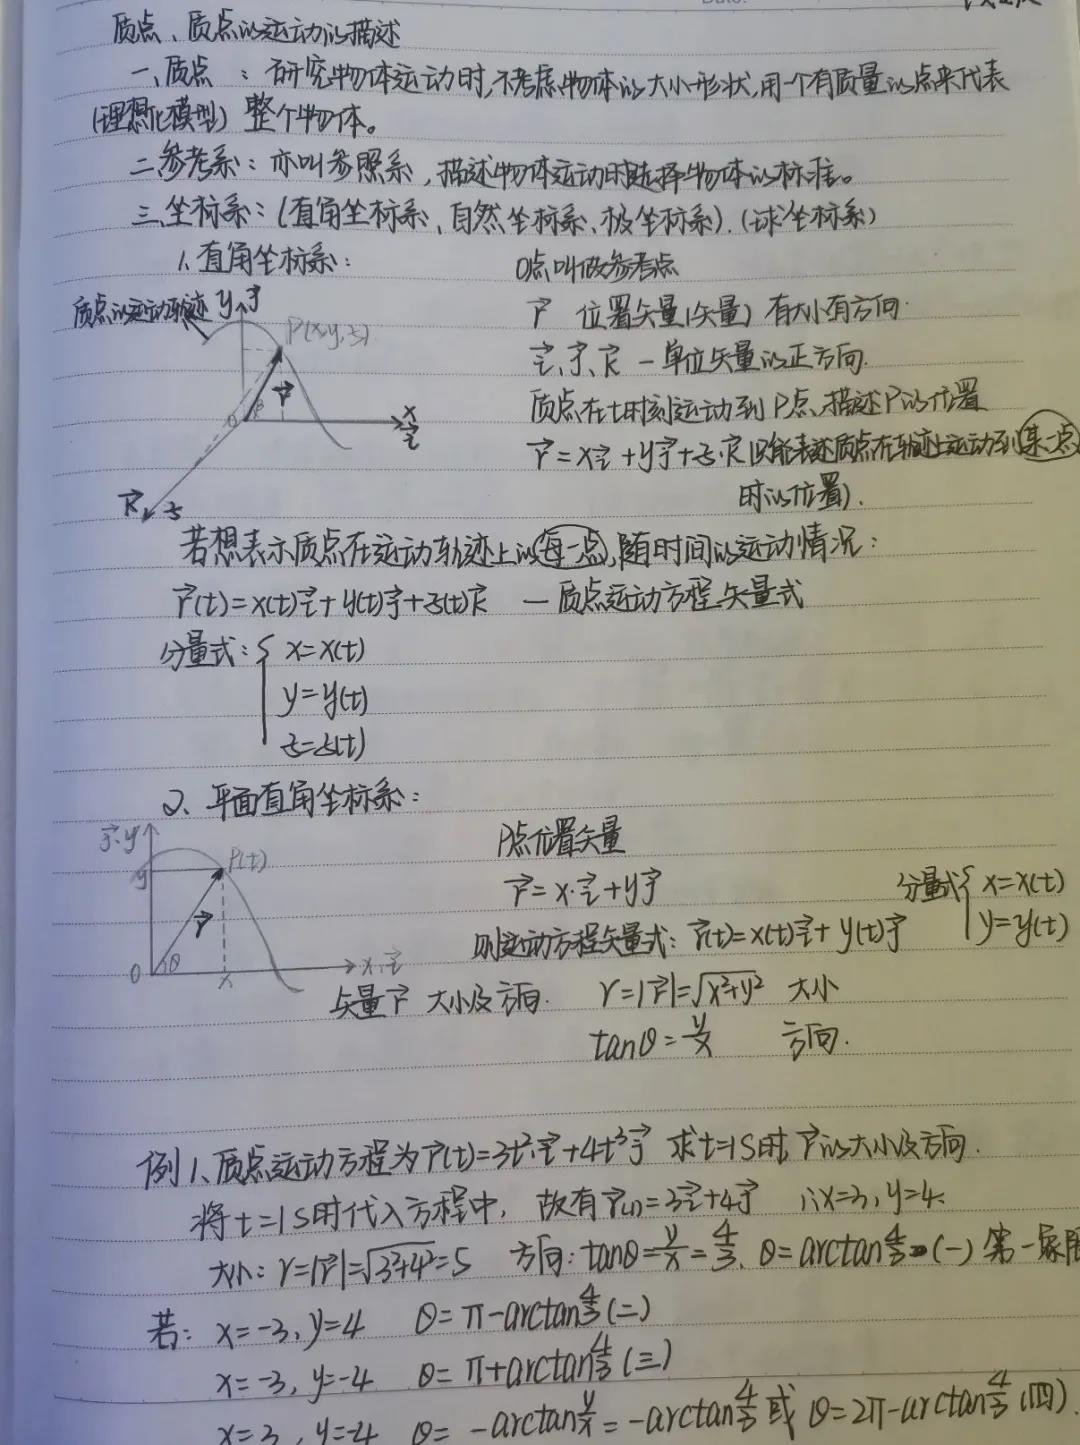 质点、质点的运动的描述
一、质点：研究物体运动时,不考虑物体的大小形状,用一个有质量的点来代表
(理想化模型) 整个物体。
二.参考系：亦叫参照系,描述物体运动时选择物体的标准。
三.坐标系：(直角坐标系、自然坐标系、极坐标系).(球坐标系)
1.直角坐标系：
O点叫做参考点
质点的运动轨迹 y j⃗
P(x,y,z)
r⃗ 位置矢量(矢量) 有大小有方向.
i⃗、j⃗、k⃗ —单位矢量的正方向.
r⃗
O β x i⃗
k⃗ z
质点在t时刻运动到P点、描述P的位置
r⃗=xi⃗+yj⃗+z·k⃗ (只能表述质点在轨迹上运动到(某一点)
时的位置).
若想表示质点在运动轨迹上的(每一点),随时间的运动情况：
r⃗(t)=x(t)i⃗+y(t)j⃗+z(t)k⃗ —质点运动方程矢量式
分量式：{ x=x(t)
y=y(t)
z=z(t)
2、平面直角坐标系：
j⃗.y
y P(t)
r⃗
O θ x x.i⃗
P点位置矢量
r⃗=x·i⃗+yj⃗ 分量式{ x=x(t)
y=y(t)
则运动方程矢量式：r⃗(t)=x(t)i⃗+y(t)j⃗
矢量r⃗ 大小及方向. r=|r⃗|=√x²+y² 大小
tanθ=y/x 方向.
例1、质点运动方程为r⃗(t)=3t²·i⃗+4t³j⃗ 求t=1S时 r⃗的大小及方向.
将t=1S时代入方程中, 故有r⃗(1)=3i⃗+4j⃗ ∴x=3,y=4.
大小：r=|r⃗|=√3²+4²=5 方向：tanθ=y/x=4/3. θ=arctan4/3 (一) 第一象限
若：x=-3,y=4 θ=π-arctan4/3(二)
x=-3,y=-4 θ=π+arctan4/3(三)
x=3,y=-4 θ=-arctan y/x=-arctan4/3 或 θ=2π-arctan4/3(四).